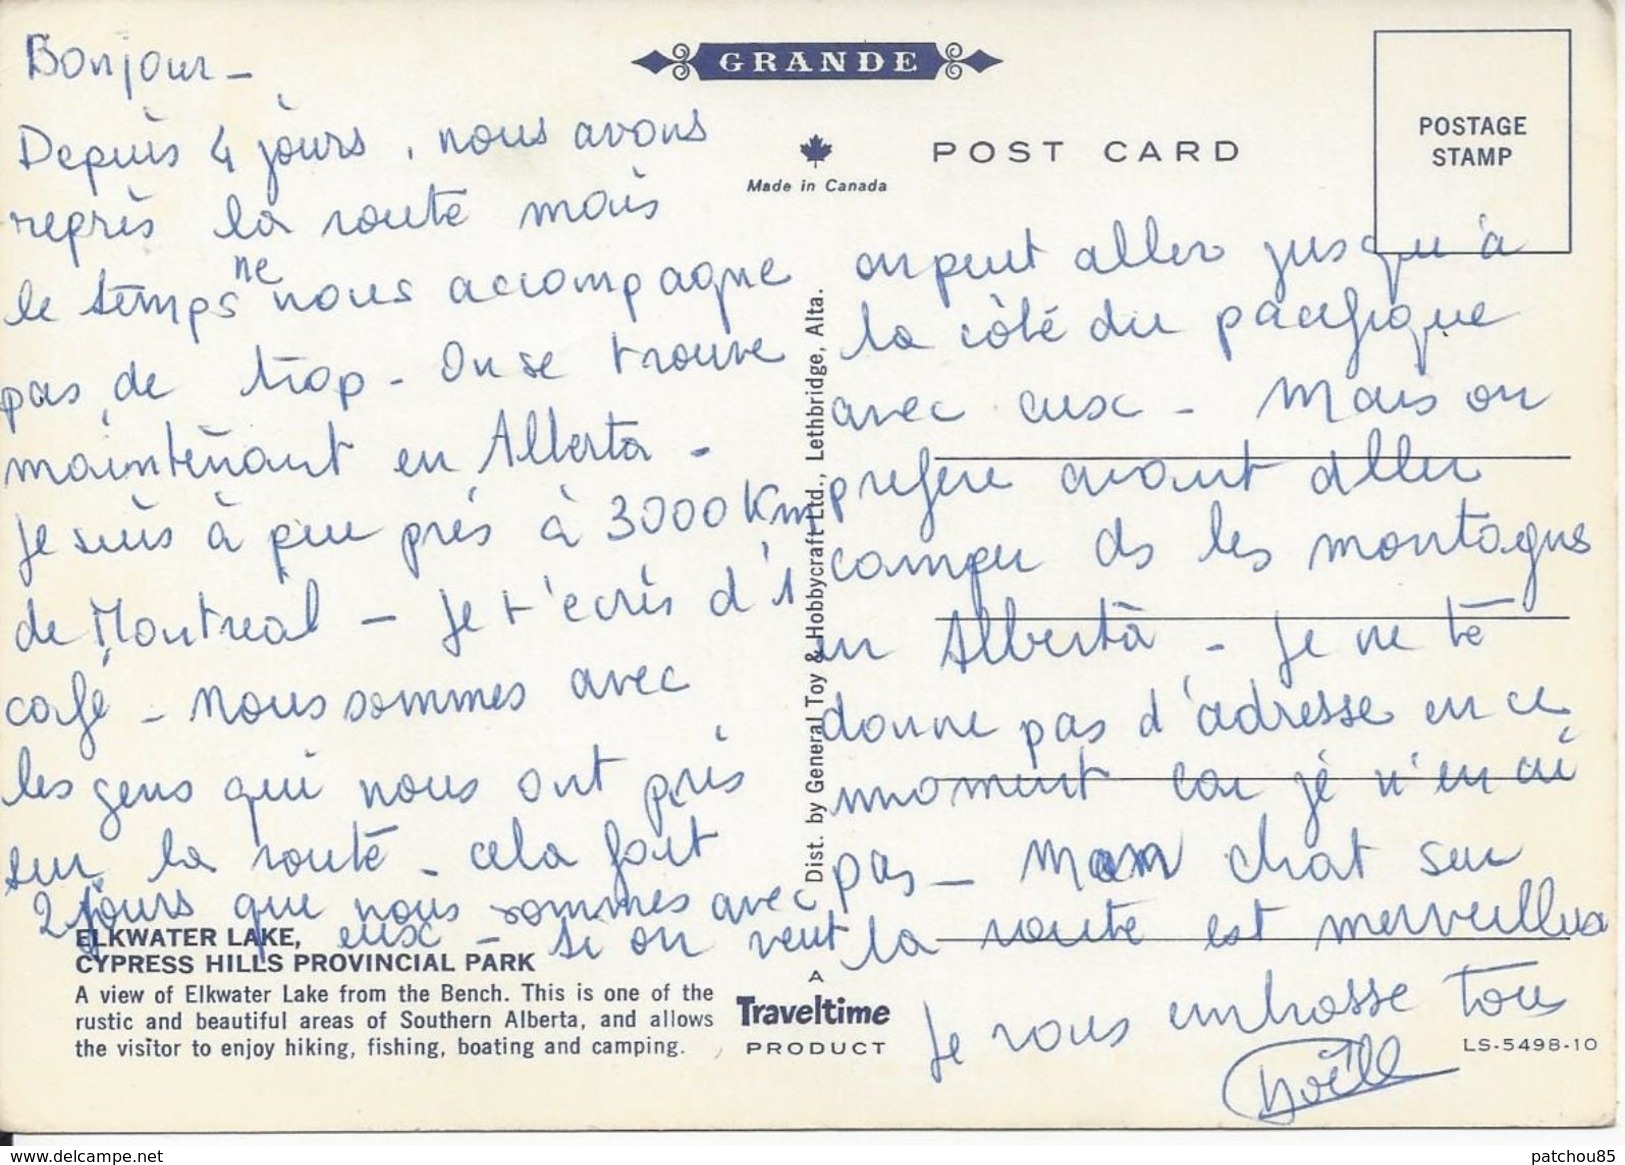 Bonjour -
Depuis 4 jours, nous avons
repris la route mais
le temps ne nous accompagne
pas de trop - On se trouve
maintenant en Alberta -
Je suis à peu près à 3000 Km
de Montréal - Je t'écris d'1
café - Nous sommes avec
les gens qui nous ont pris
sur la route - cela fait
2 jours que nous sommes avec
eux - Si on veut
on peut aller jusqu'à
la côté du pacifique
avec eux - Mais on
prefere avant aller
camper ds les montagnes
en Alberta - Je ne te
donne pas d'adresse en ce
moment car je n'en ai
pas - Mon chat sur
la route est merveilleux
Je vous embrasse tous
Noëlle
GRANDE
Made in Canada
POST CARD
POSTAGE
STAMP
Dist. by General Toy & Hobbycraft Ltd., Lethbridge, Alta.
ELKWATER LAKE,
CYPRESS HILLS PROVINCIAL PARK
A view of Elkwater Lake from the Bench. This is one of the
rustic and beautiful areas of Southern Alberta, and allows
the visitor to enjoy hiking, fishing, boating and camping.
A
Traveltime
PRODUCT
LS-5498-10
www.delcampe.net
patchou85